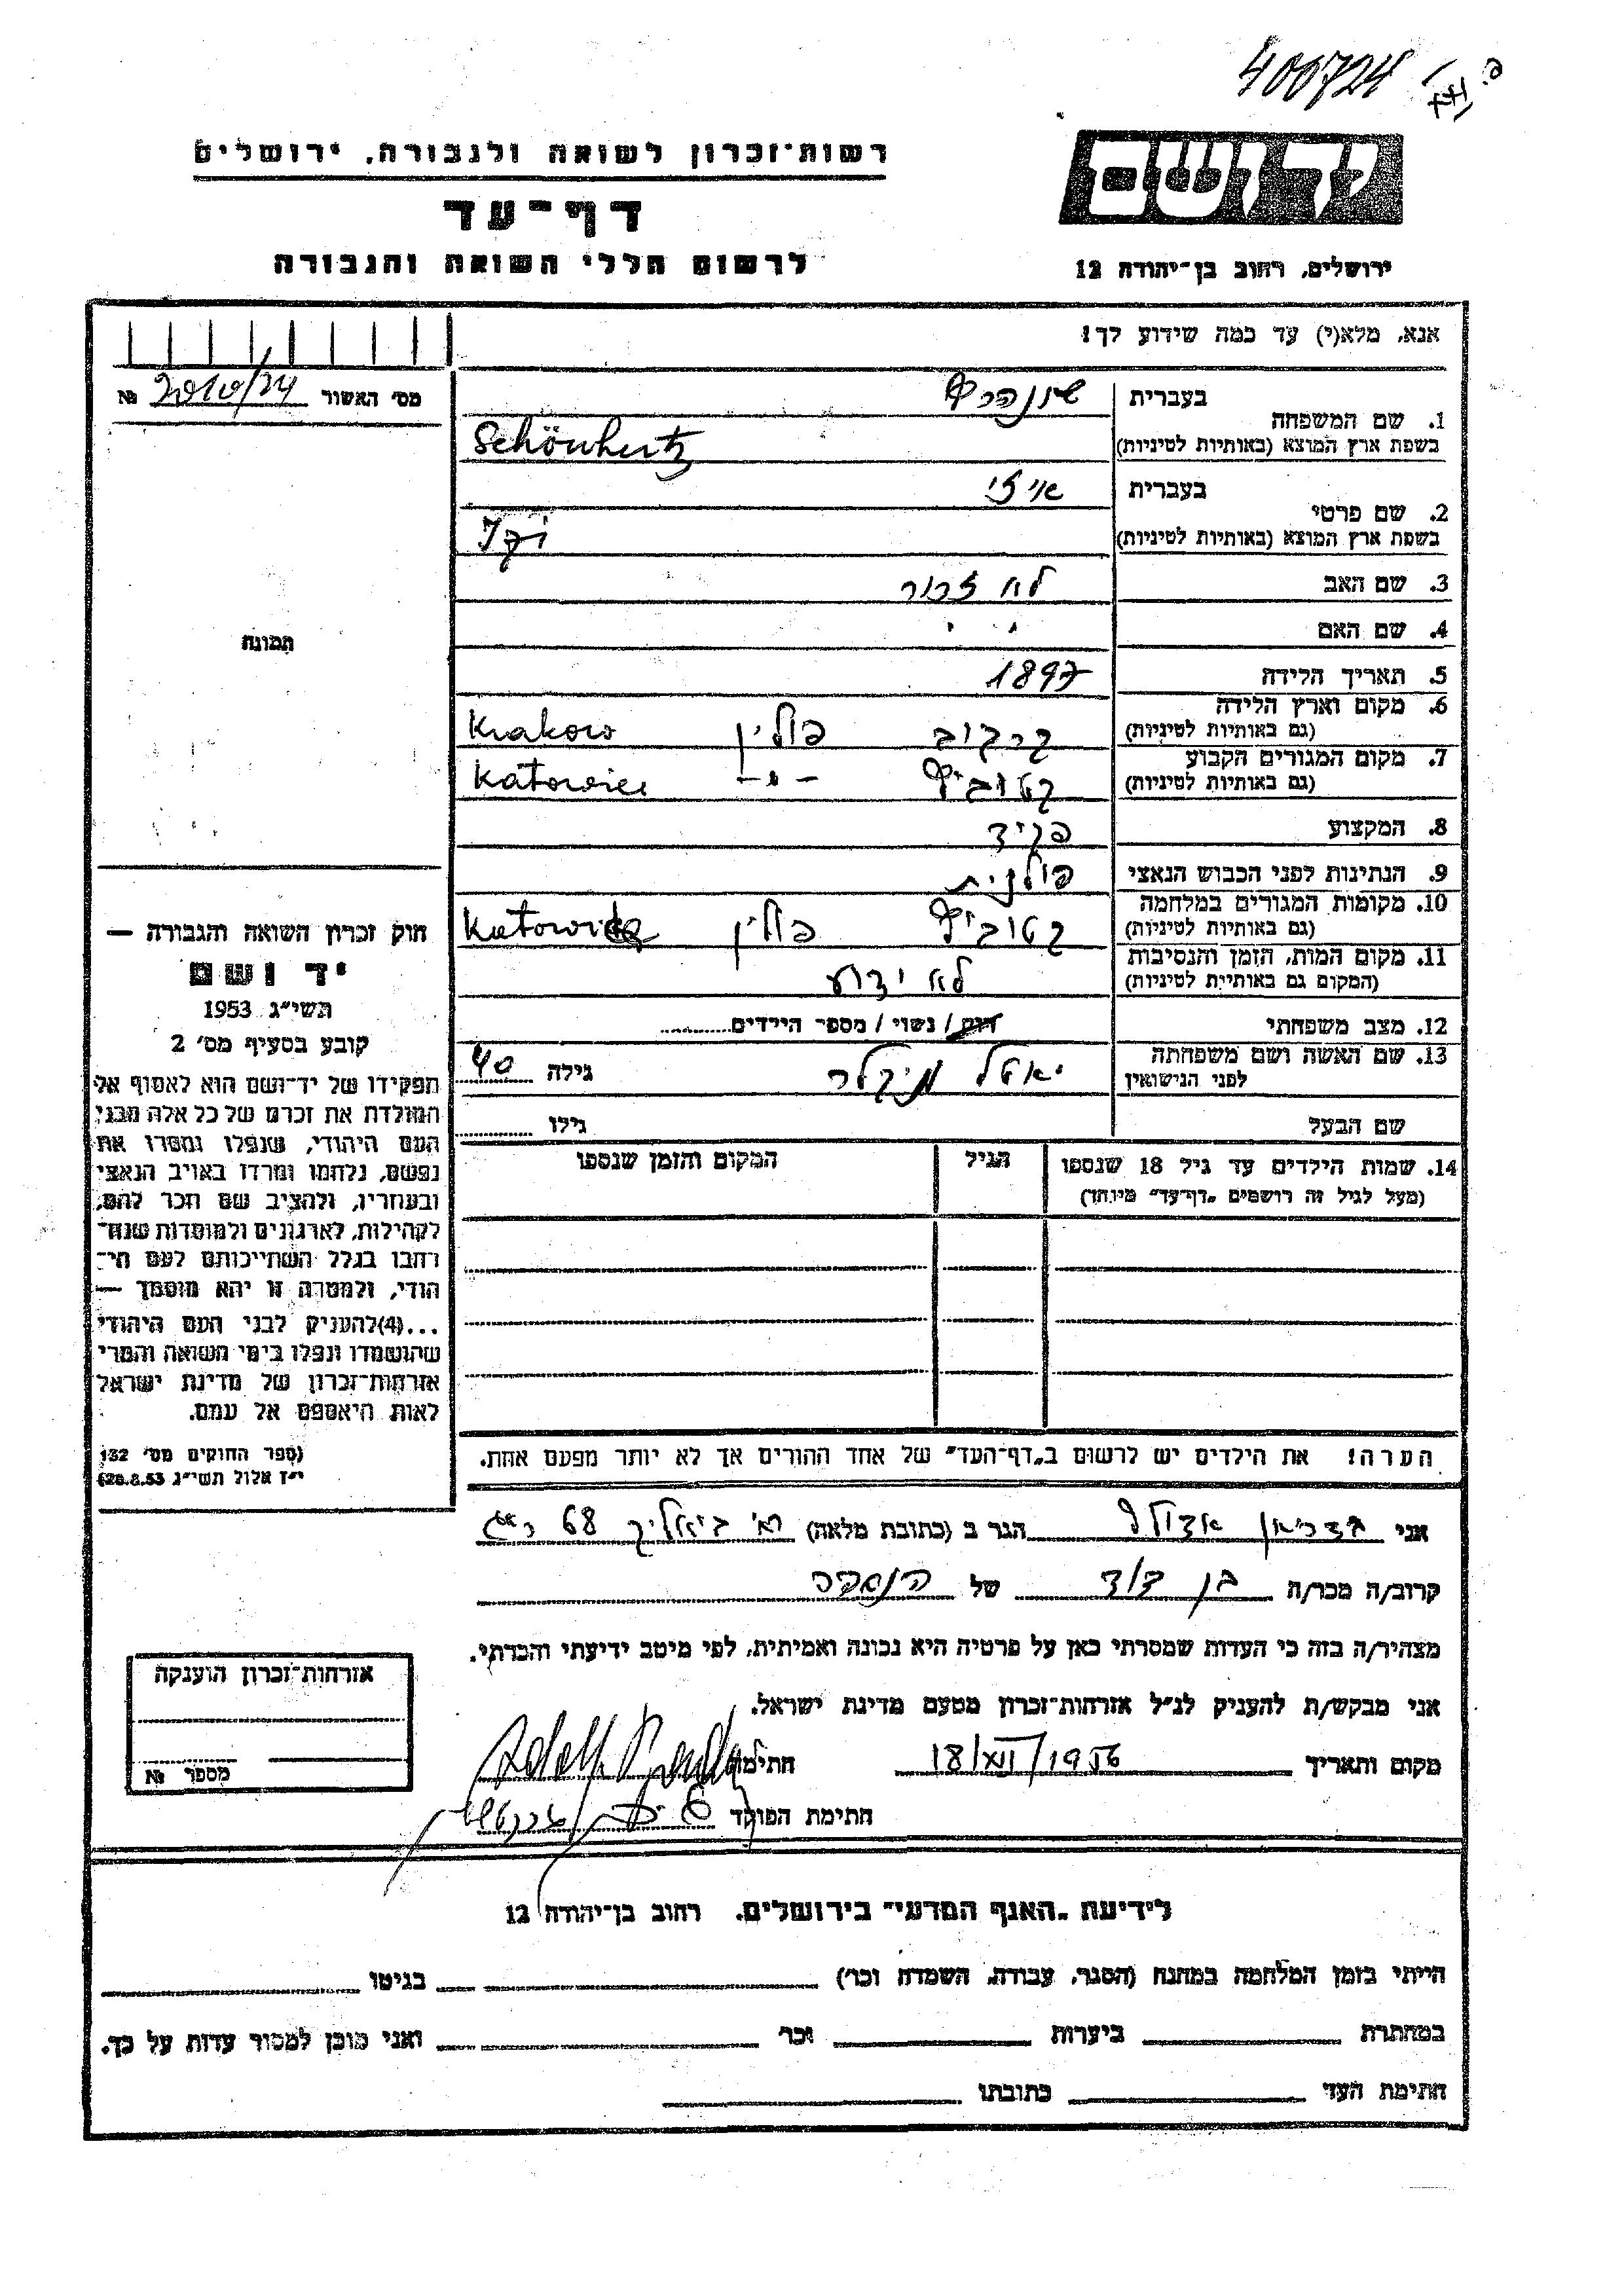 400724
רשות־זכרון לשואה ולגבורה, ירושלים
יד ושם
דף־עד
לרשום חללי השואה והגבורה
ירושלים, רחוב בן־יהודה 12
אנא, מלא(י) עד כמה שידוע לך!
מס׳ האשור № 2010/24
בעברית שונהרץ
1. שם המשפחה
בשפת ארץ המוצא (באותיות לטיניות) Schönhertz
בעברית איזי
2. שם פרטי
בשפת ארץ המוצא (באותיות לטיניות)
3. שם האב לא זכור
4. שם האם " "
תמונה
5. תאריך הלידה 1897
6. מקום וארץ הלידה
(גם באותיות לטיניות) קרקוב פולין Krakow
7. מקום המגורים הקבוע
(גם באותיות לטיניות) קטוביץ -"- Katowice
8. המקצוע פקיד
9. הנתינות לפני הכבוש הנאצי פולנית
10. מקומות המגורים במלחמה
(גם באותיות לטיניות) קטוביץ פולין Katowice
11. מקום המות, הזמן והנסיבות
(המקום גם באותיות לטיניות) לא ידוע
12. מצב משפחתי רווק / נשוי / מספר הילדים
13. שם האשה ושם משפחתה
לפני הנישואין גילה 40
שם הבעל גילו
14. שמות הילדים עד גיל 18 שנספו הגיל המקום והזמן שנספו
(מעל לגיל זה רושמים „דף־עד״ מיוחד)
הערה! את הילדים יש לרשום ב„דף־העד״ של אחד ההורים אך לא יותר מפעם אחת.
חוק זכרון השואה והגבורה —
יד ושם
תשי״ג 1953
קובע בסעיף מס׳ 2
תפקידו של יד־ושם הוא לאסוף אל
המולדת את זכרם של כל אלה מבני
העם היהודי, שנפלו ומסרו את
נפשם, נלחמו ומרדו באויב הנאצי
ובעוזריו, ולהציב שם וזכר להם,
לקהילות, לארגונים ולמוסדות שנח־
רבו בגלל השתייכותם לעם הי־
הודי, ולמטרה זו יהא מוסמך —
...(4)להעניק לבני העם היהודי
שהושמדו ונפלו בימי השואה והמרי
אזרחות־זכרון של מדינת ישראל
לאות היאספם אל עמם.
(ספר החוקים מס׳ 132
י״ז אלול תשי״ג 28.8.53)
אני אדולף הגר ב (כתובת מלאה) ביאליק 68
קרוב/ה מכר/ה בן דוד של הנספה
מצהיר/ה בזה כי העדות שמסרתי כאן על פרטיה היא נכונה ואמיתית, לפי מיטב ידיעתי והכרתי.
אני מבקש/ת להעניק לנ״ל אזרחות־זכרון מטעם מדינת ישראל.
מקום ותאריך 18/XII/1956 חתימה Adolf
חתימת הפוקד
אזרחות־זכרון הוענקה
מספר №
לידיעת „האגף המדעי״ בירושלים, רחוב בן־יהודה 12
הייתי בזמן המלחמה במחנה (הסגר, עבודה, השמדה וכו׳) בגיטו
במחתרת ביערות וכו׳ ואני מוכן למסור עדות על כך.
חתימת העד כתובתו